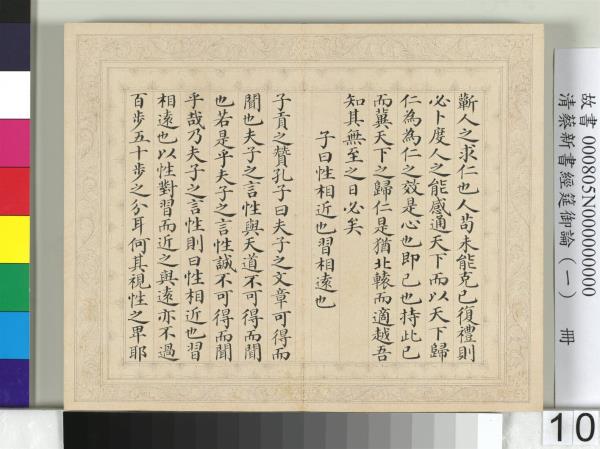 蘄人之求仁也人苟未能克己復禮則
必卜度人之能感通天下而以天下歸
仁為為仁之效是心也即己也持此己
而冀天下之歸仁是猶北轅而適越吾
知其無至之日必矣
子曰性相近也習相遠也
子貢之贊孔子曰夫子之文章可得而
聞也夫子之言性與天道不可得而聞
也若是乎夫子之言性誠不可得而聞
乎哉乃夫子之言性則曰性相近也習
相遠也以性對習而近之與遠亦不過
百步五十步之分耳何其視性之卑耶
故書 000805N000000000
清蔡新書經筵御論（一） 冊
10